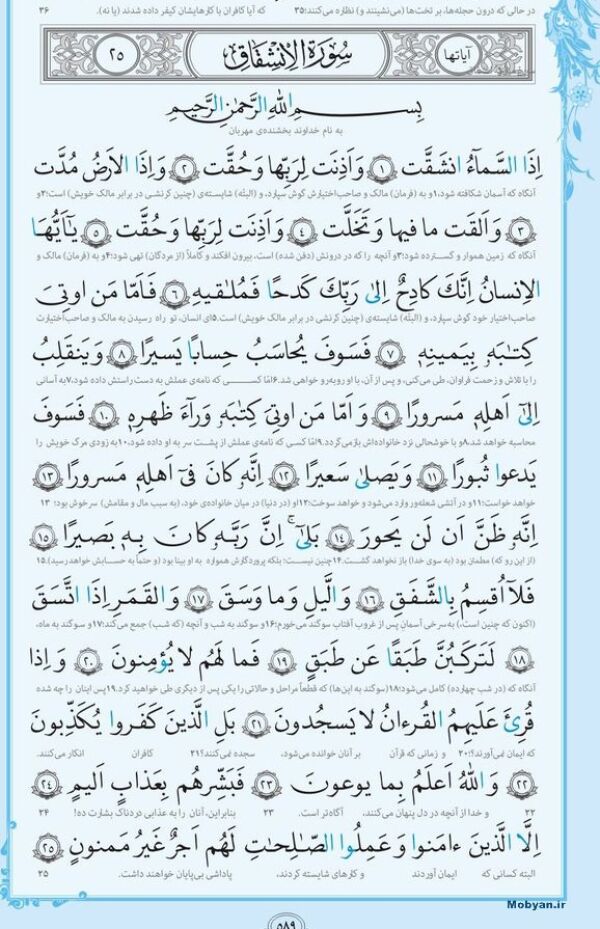 در حالی که درون حجله‌ها، بر تخت‌ها (می‌نشینند و) نظاره می‌کنند؛۳۵ که آیا کافران با کارهایشان کیفر داده شدند (یا نه). ۳۶
آیاتها سورة الانشقاق ۲۵
بسم الله الرحمن الرحیم
به نام خداوند بخشنده‌ی مهربان
اِذَا السَّمآءُ انشَقَّت ۱ وَ اَذِنَت لِرَبِّها وَ حُقَّت ۲ وَ اِذَا الاَرضُ مُدَّت
آنگاه که آسمان شکافته شود،۱و به (فرمان) مالک و صاحب‌اختیارش گوش سپارد، و (البتّه) شایسته‌ی (چنین کرنشی در برابر مالک خویش) است؛۲و
۳ وَ اَلقَت ما فیها وَ تَخَلَّت ۴ وَ اَذِنَت لِرَبِّها وَ حُقَّت ۵ یٰاَیُّهَا
آنگاه که زمین هموار و گسترده شود؛۳و آنچه را که در درونش (دفن شده) است، بیرون افکند و کاملاً (از مردگان) تهی شود؛۴و به (فرمان) مالک و
الاِنسانُ اِنَّکَ کادِحٌ اِلیٰ رَبِّکَ کَدحًا فَمُلٰقیهِ ۶ فَاَمّا مَن اوتِیَ
صاحب‌اختیار خود گوش سپارد، و (البتّه) شایسته‌ی (چنین کرنشی در برابر مالک خویش) است.۵ای انسان، تو راه رسیدن به مالک و صاحب‌اختیارت
کِتٰبَه‌و بِیَمینِه ۷ فَسَوفَ یُحاسَبُ حِسابًا یَسیرًا ۸ وَ یَنقَلِبُ
را با تلاش و زحمت فراوان، طی می‌کنی، و پس از آن، با او روبه‌رو خواهی شد.۶امّا کسی که نامه‌ی عملش به دست راستش داده شود،۷به آسانی
اِلیٰٓ اَهلِه مَسرورًا ۹ وَ اَمّا مَن اوتِیَ کِتٰبَه‌و وَرآءَ ظَهرِه ۱۰ فَسَوفَ
محاسبه خواهد شد.۸و با خوشحالی نزد خانواده‌اش بازمی‌گردد.۹امّا کسی که نامه‌ی عملش از پشت سر به او داده شود،۱۰به زودی مرگ خویش را
یَدعوا ثُبورًا ۱۱ وَ یَصلیٰ سَعیرًا ۱۲ اِنَّه‌و کانَ فیٓ اَهلِه مَسرورًا ۱۳
خواهد خواست؛۱۱و در آتشی شعله‌ور وارد می‌شود و خواهد سوخت؛۱۲او (در دنیا) در میان خانواده‌ی خود، (به سبب مال و مقامش) سرخوش بود؛ ۱۳
اِنَّه‌و ظَنَّ اَن لَن یَحورَ ۱۴ بَلیٰٓ اِنَّ رَبَّه‌و کانَ بِه بَصیرًا ۱۵
(از این رو که) مطمئن بود (به سوی خدا) باز نخواهد گشت.۱۴چنین نیست؛ بلکه پروردگارش همواره به او بینا بود (و حتماً به حسابش خواهد رسید).۱۵
فَلآ اُقسِمُ بِالشَّفَقِ ۱۶ وَ الَّیلِ وَ ما وَسَقَ ۱۷ وَ القَمَرِ اِذَا اتَّسَقَ
(اکنون که چنین است،) به سرخی آسمان پس از غروب آفتاب سوگند می‌خورم؛۱۶و سوگند به شب و آنچه (که شب) جمع می‌کند؛۱۷و سوگند به ماه،
۱۸ لَتَرکَبُنَّ طَبَقًا عَن طَبَقٍ ۱۹ فَما لَهُم لا یُؤمِنونَ ۲۰ وَ اِذا
آنگاه که (در شب چهارده) کامل می‌شود؛۱۸(سوگند به این‌ها) که قطعاً مراحل و حالاتی را یکی پس از دیگری طی خواهید کرد.۱۹پس اینان را چه شده
قُرِئَ عَلَیهِمُ القُرءانُ لا یَسجُدونَ ۲۱ بَلِ الَّذینَ کَفَروا یُکَذِّبونَ
که ایمان نمی‌آورند؟۲۰ و زمانی که قرآن بر آنان خوانده می‌شود، سجده نمی‌کنند؟۲۱ کافران انکار می‌کنند.
۲۲ وَ اللهُ اَعلَمُ بِما یوعونَ ۲۳ فَبَشِّرهُم بِعَذابٍ اَلیمٍ ۲۴
۲۲ و خدا از آنچه در دل پنهان می‌کنند، آگاه‌تر است. ۲۳ بنابراین، آنان را به عذابی دردناک بشارت ده! ۲۴
اِلَّا الَّذینَ ءامَنوا وَ عَمِلُوا الصّالِحٰتِ لَهُم اَجرٌ غَیرُ مَمنونٍ ۲۵
البته کسانی که ایمان آوردند و کارهای شایسته کردند، پاداشی بی‌پایان خواهند داشت. ۲۵
Mobyan.ir
۵۸۹